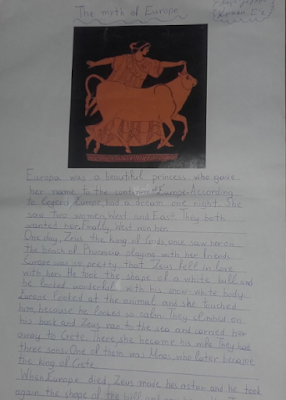 The myth of Europe
Europa was a beautiful princess who gave
her name to the continent of Europe. According
to legend Europe had a dream one night. She
saw two women, West and East. They both
wanted her. Finally, West won her.
One day, Zeus, the king of Gods, once saw her on
the beach of Phoenicia playing with her friends.
Europe was so pretty, that Zeus fell in love
with her. He took the shape of a white bull and
he looked wonderful with his snow-white body.
Europe looked at the animal and she touched
him, because he looked so calm. They climbed on
his back and Zeus ran to the sea and carried her
away to Crete. There, she became his wife. They had
three sons. One of them was Minos who later became
the king of Crete.
When Europe died, Zeus made his star and he took
again the shape of the bull